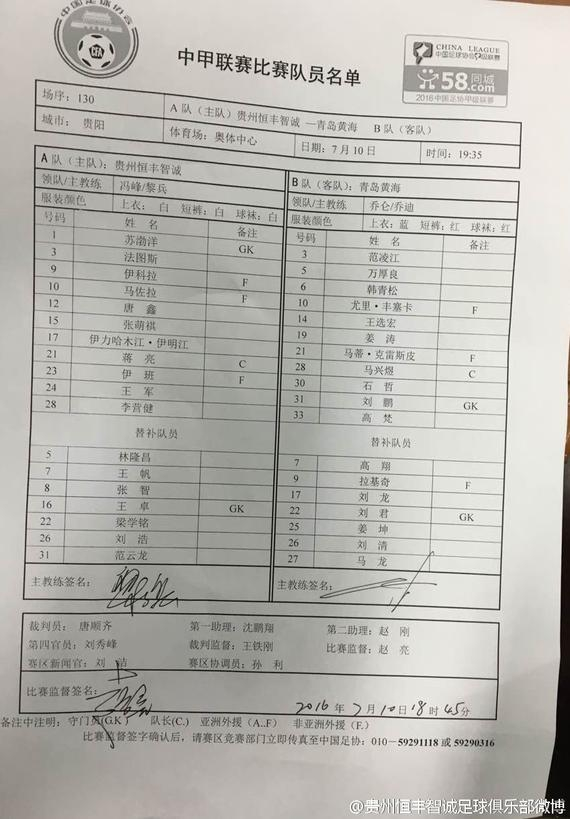 中国足球协会
CFA
中甲联赛比赛队员名单
CHINA LEAGUE
中国足球协会甲级联赛
58同城
58.com
2016中国足协甲级联赛
场序：130 A 队（主队）贵州恒丰智诚 —青岛黄海 B 队（客队）
城市： 贵阳 体育场：奥体中心 日期：7 月 10 日 时间：19:35
A 队（主队）：贵州恒丰智诚
领队/主教练 冯峰/黎兵
服装颜色 上衣： 白 短裤：白 球袜：白
号码 姓 名 备注
1 苏渤洋 GK
3 法图斯
9 伊科拉 F
10 马佐拉 F
12 唐 鑫
15 张萌祺
17 伊力哈木江·伊明江
21 蒋 亮 C
23 伊 班 F
24 王 军
28 李营健
替补队员
5 林隆昌
7 王 帆
8 张 智
16 王 卓 GK
22 梁学铭
26 刘 浩
31 范云龙
主教练签名：
B 队（客队）：青岛黄海
领队/主教练 乔仑/乔迪
服装颜色 上衣：蓝 短裤：红 球袜：红
号码 姓 名 备注
3 范凌江
5 万厚良
6 韩青松
10 尤里·丰塞卡 F
14 王选宏
19 姜 涛
21 马蒂·克雷斯皮 F
28 马兴煜 C
30 石 哲
31 刘 鹏 GK
33 高 梵
替补队员
7 高 翔
9 拉基奇 F
17 刘 龙
22 刘 君 GK
25 姜 坤
26 刘 清
27 马 龙
主教练签名：
裁判员： 唐顺齐 第一助理：沈鹏翔 第二助理：赵 刚
第四官员：刘秀峰 裁判监督：王铁刚 比赛监督：赵 亮
赛区新闻官：刘 洁 赛区协调员：孙 利
比赛监督签名： 2016 年 7 月 10 日 18 时 45 分
备注中注明：守门员(GK) 队长(C.) 亚洲外援（A..F） 非亚洲外援（F.）
比赛监督签字确认后，请赛区竞赛部门立即传真至中国足协：010—59291118 或 59290316
@贵州恒丰智诚足球俱乐部微博